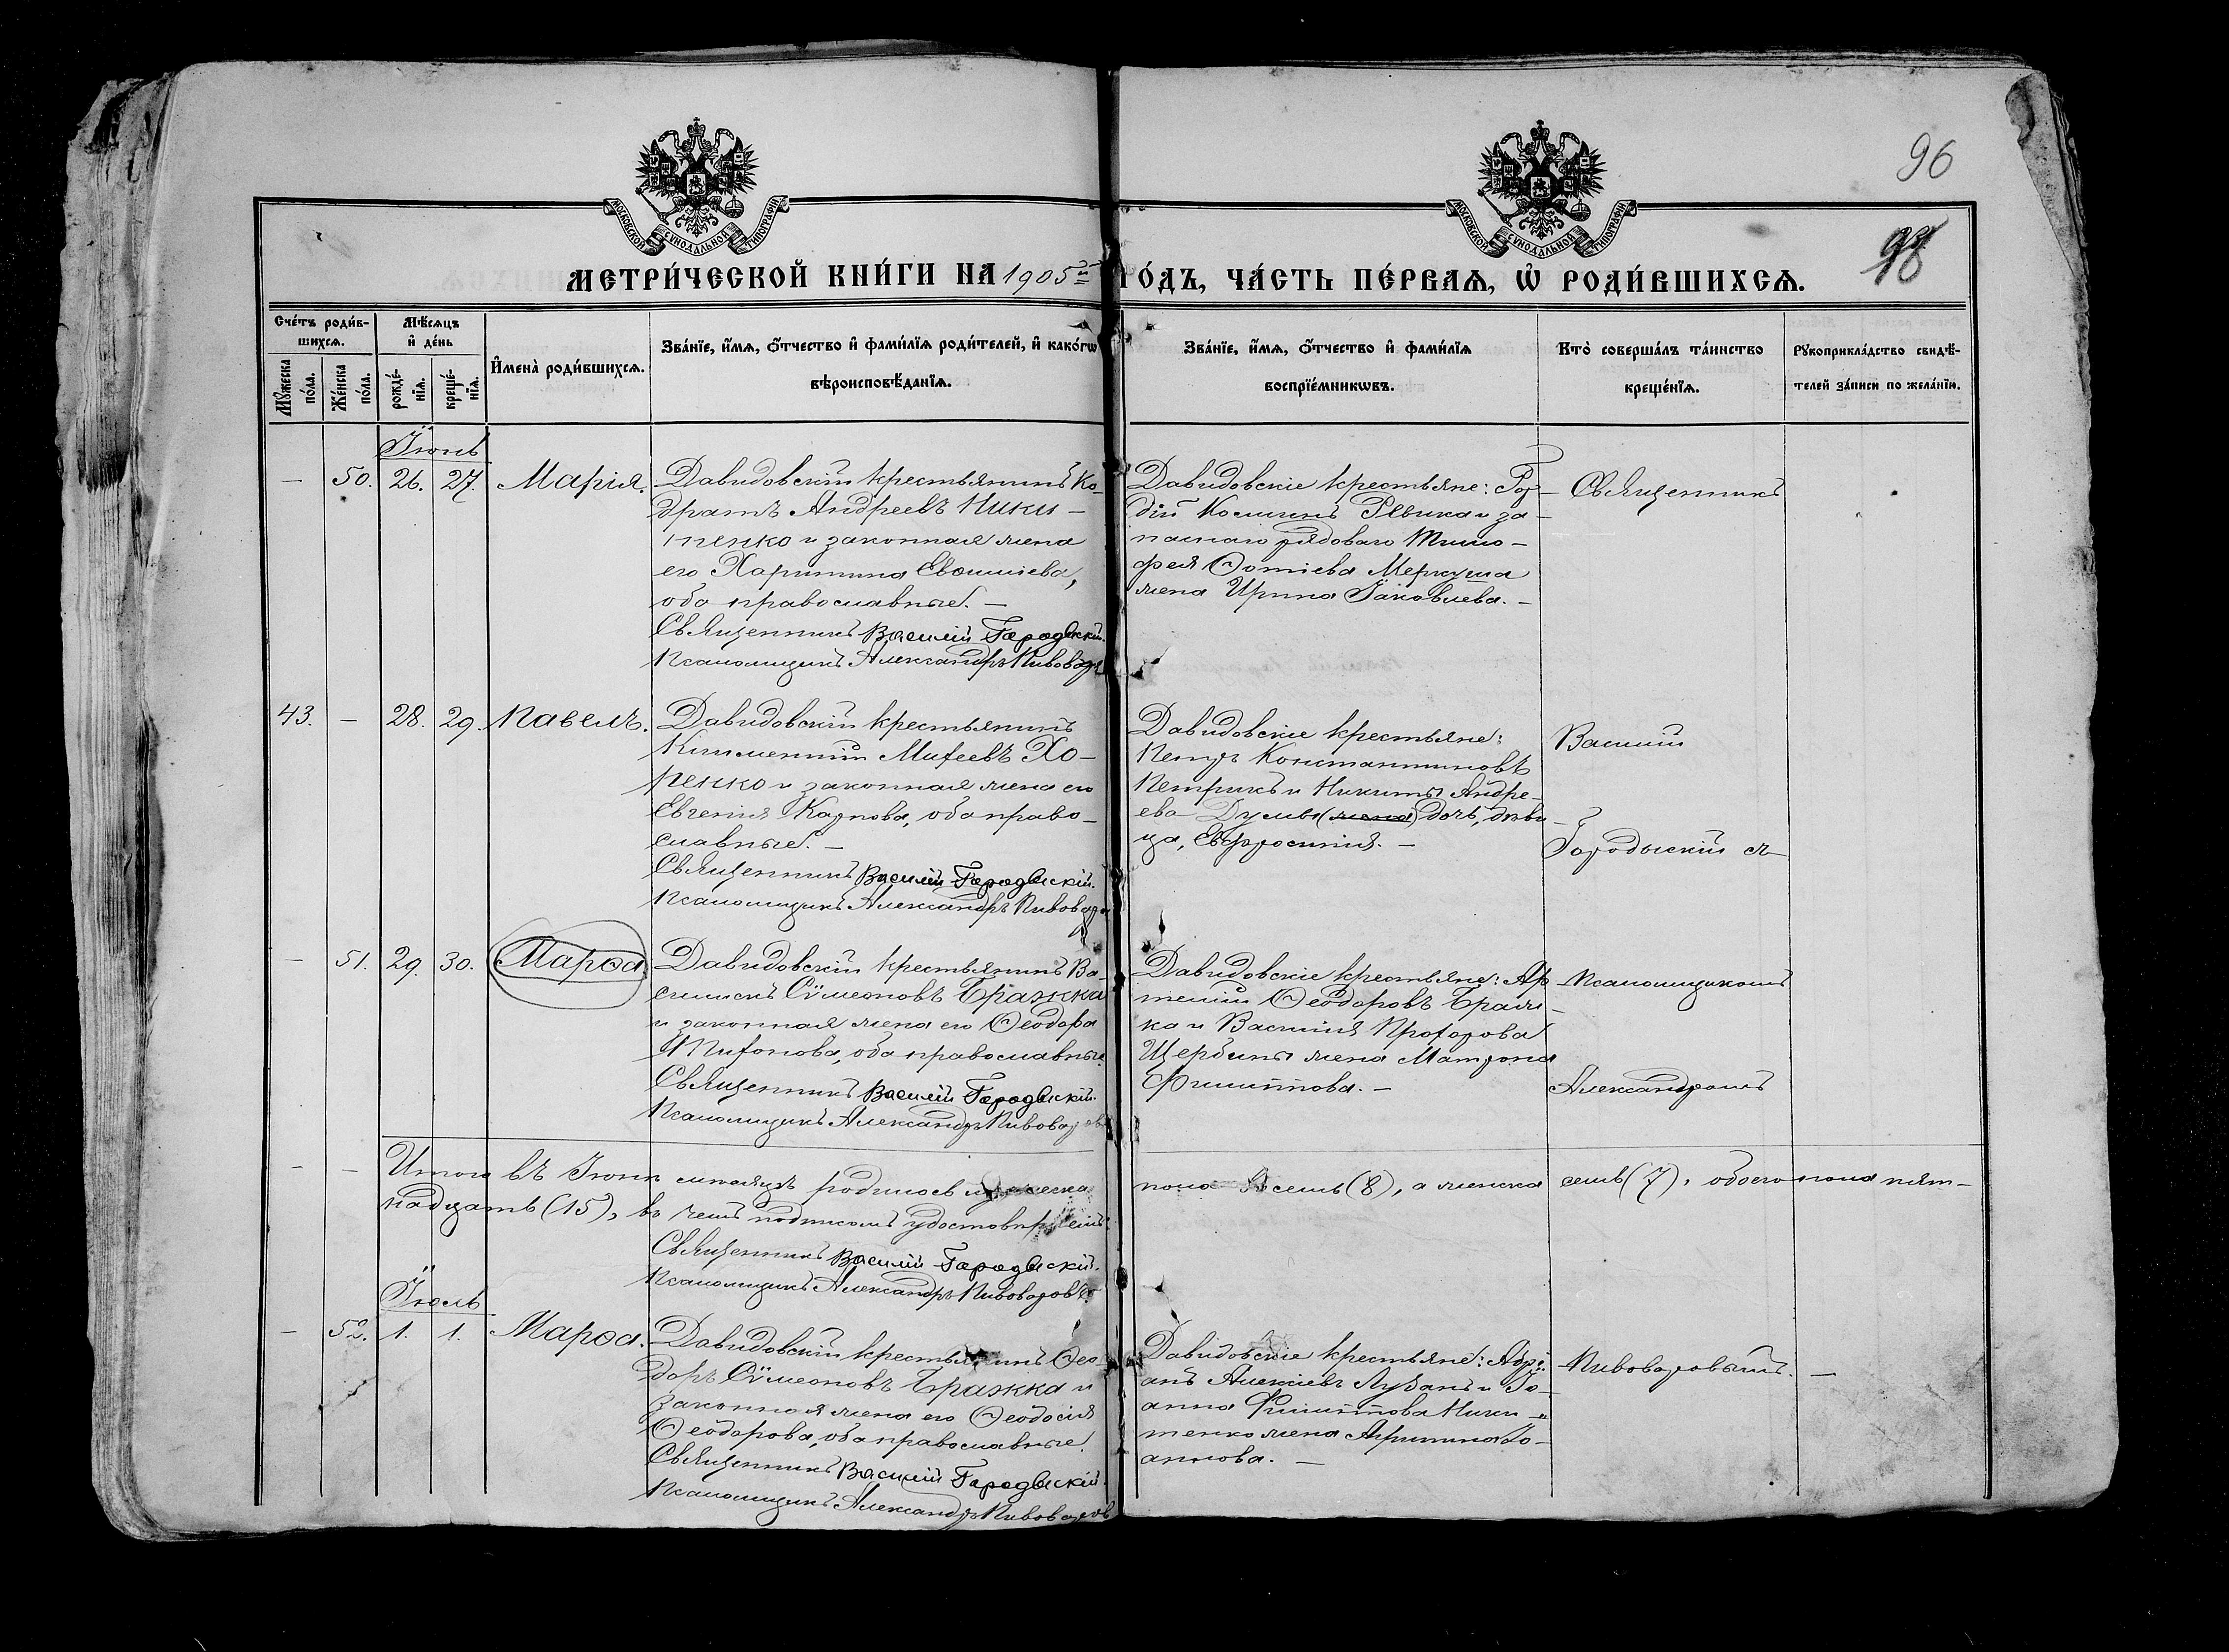 96
98
МОСКОВСКОЙ СѴНОДАЛЬНОЙ ТИПОГРАФІИ
МОСКОВСКОЙ СѴНОДАЛЬНОЙ ТИПОГРАФІИ
МЕТРИ́ЧЕСКОЙ КНИ́ГИ НА 1905й ГО́ДЪ, ЧА́СТЬ ПЕ́РВАѦ, Ѡ҆ РОДИ́ВШИХСѦ.
Сче́тъ роди́в-
шихсѧ.
Мѣ́сѧцъ
и҆ де́нь
Мꙋ́жеска
по́ла.
Же́нска
по́ла.
рожде́-
нїѧ.
креще́-
нїѧ.
И҆мена̀ роди́вшихсѧ.
Зва́нїе, и҆́мѧ, ѻ҆́тчество и҆ фами́лїѧ роди́телей, и҆ како́гѡ
вѣроисповѣ́данїѧ.
Зва́нїе, и҆́мѧ, ѻ҆́тчество и҆ фами́лїѧ
воспрїе́мникѡвъ.
Кто̀ соверша́лъ та́инство
креще́нїѧ.
Рꙋкоприкла́дство свидѣ́-
телей за́писи по жела́нїю.
Іюнь
— 50. 26. 27. Марія.
Давидовскій крестьянинъ Ко-
дратъ Андреевъ Ники-
тенко и законная жена
его Харитина Евѳиміева,
оба православные. —
Священникъ Василій Городыскій.
Псаломщикъ Александръ Пивоваровъ
Давидовскіе крестьяне: Ро-
дій Косминъ Ревика и за-
паснаго рядоваго Тимо-
фея Ѳотіева Меркуша
жена Ирина Іаковлева. —
Священникъ
43. — 28. 29. Павелъ.
Давидовскій крестьянинъ
Климентій Михеевъ Хо-
ренко и законная жена его
Евгенія Карпова, оба право-
славные. —
Священникъ Василій Городыскій.
Псаломщикъ Александръ Пивоваровъ
Давидовскіе крестьяне:
Петръ Константиновъ
Петрикъ и Никиты Андре-
ева Думы (жена) дочь, дѣви-
ца, Евфросинія. —
Василій
Городыскій съ
— 51. 29. 30. Марѳа.
Давидовскій крестьянинъ Ва-
силискъ Сѵмеоновъ Бражка
и законная жена его Ѳеодора
Тихонова, оба православные.
Священникъ Василій Городыскій.
Псаломщикъ Александръ Пивоваровъ
Давидовскіе крестьяне: Ар-
темій Ѳеодоровъ Браж-
ка и Василія Прохорова
Щербины жена Матрона
Филиппова. —
Псаломщикомъ
Александромъ
— — Итого въ Іюнѣ мѣсяцѣ родилось мужеска пола восемь (8), а женска семь (7), обоего пола пят-
надцать (15), въ чемъ подписомъ удостовѣряемъ.
Священникъ Василій Городыскій.
Псаломщикъ Александръ Пивоваровъ.
Іюль
— 52. 1. 1. Марѳа.
Давидовскій крестьянинъ Ѳео-
доръ Сѵмеоновъ Бражка и
законная жена его Ѳеодосія
Ѳеодорова, оба православные.
Священникъ Василій Городыскій.
Псаломщикъ Александръ Пивоваровъ
Давидовскіе крестьяне: Адрі-
анъ Алексіевъ Лубанъ и Іо-
анна Филиппова Ники-
тенко жена Агрипина Іо-
аннова. —
Пивоваровымъ. —